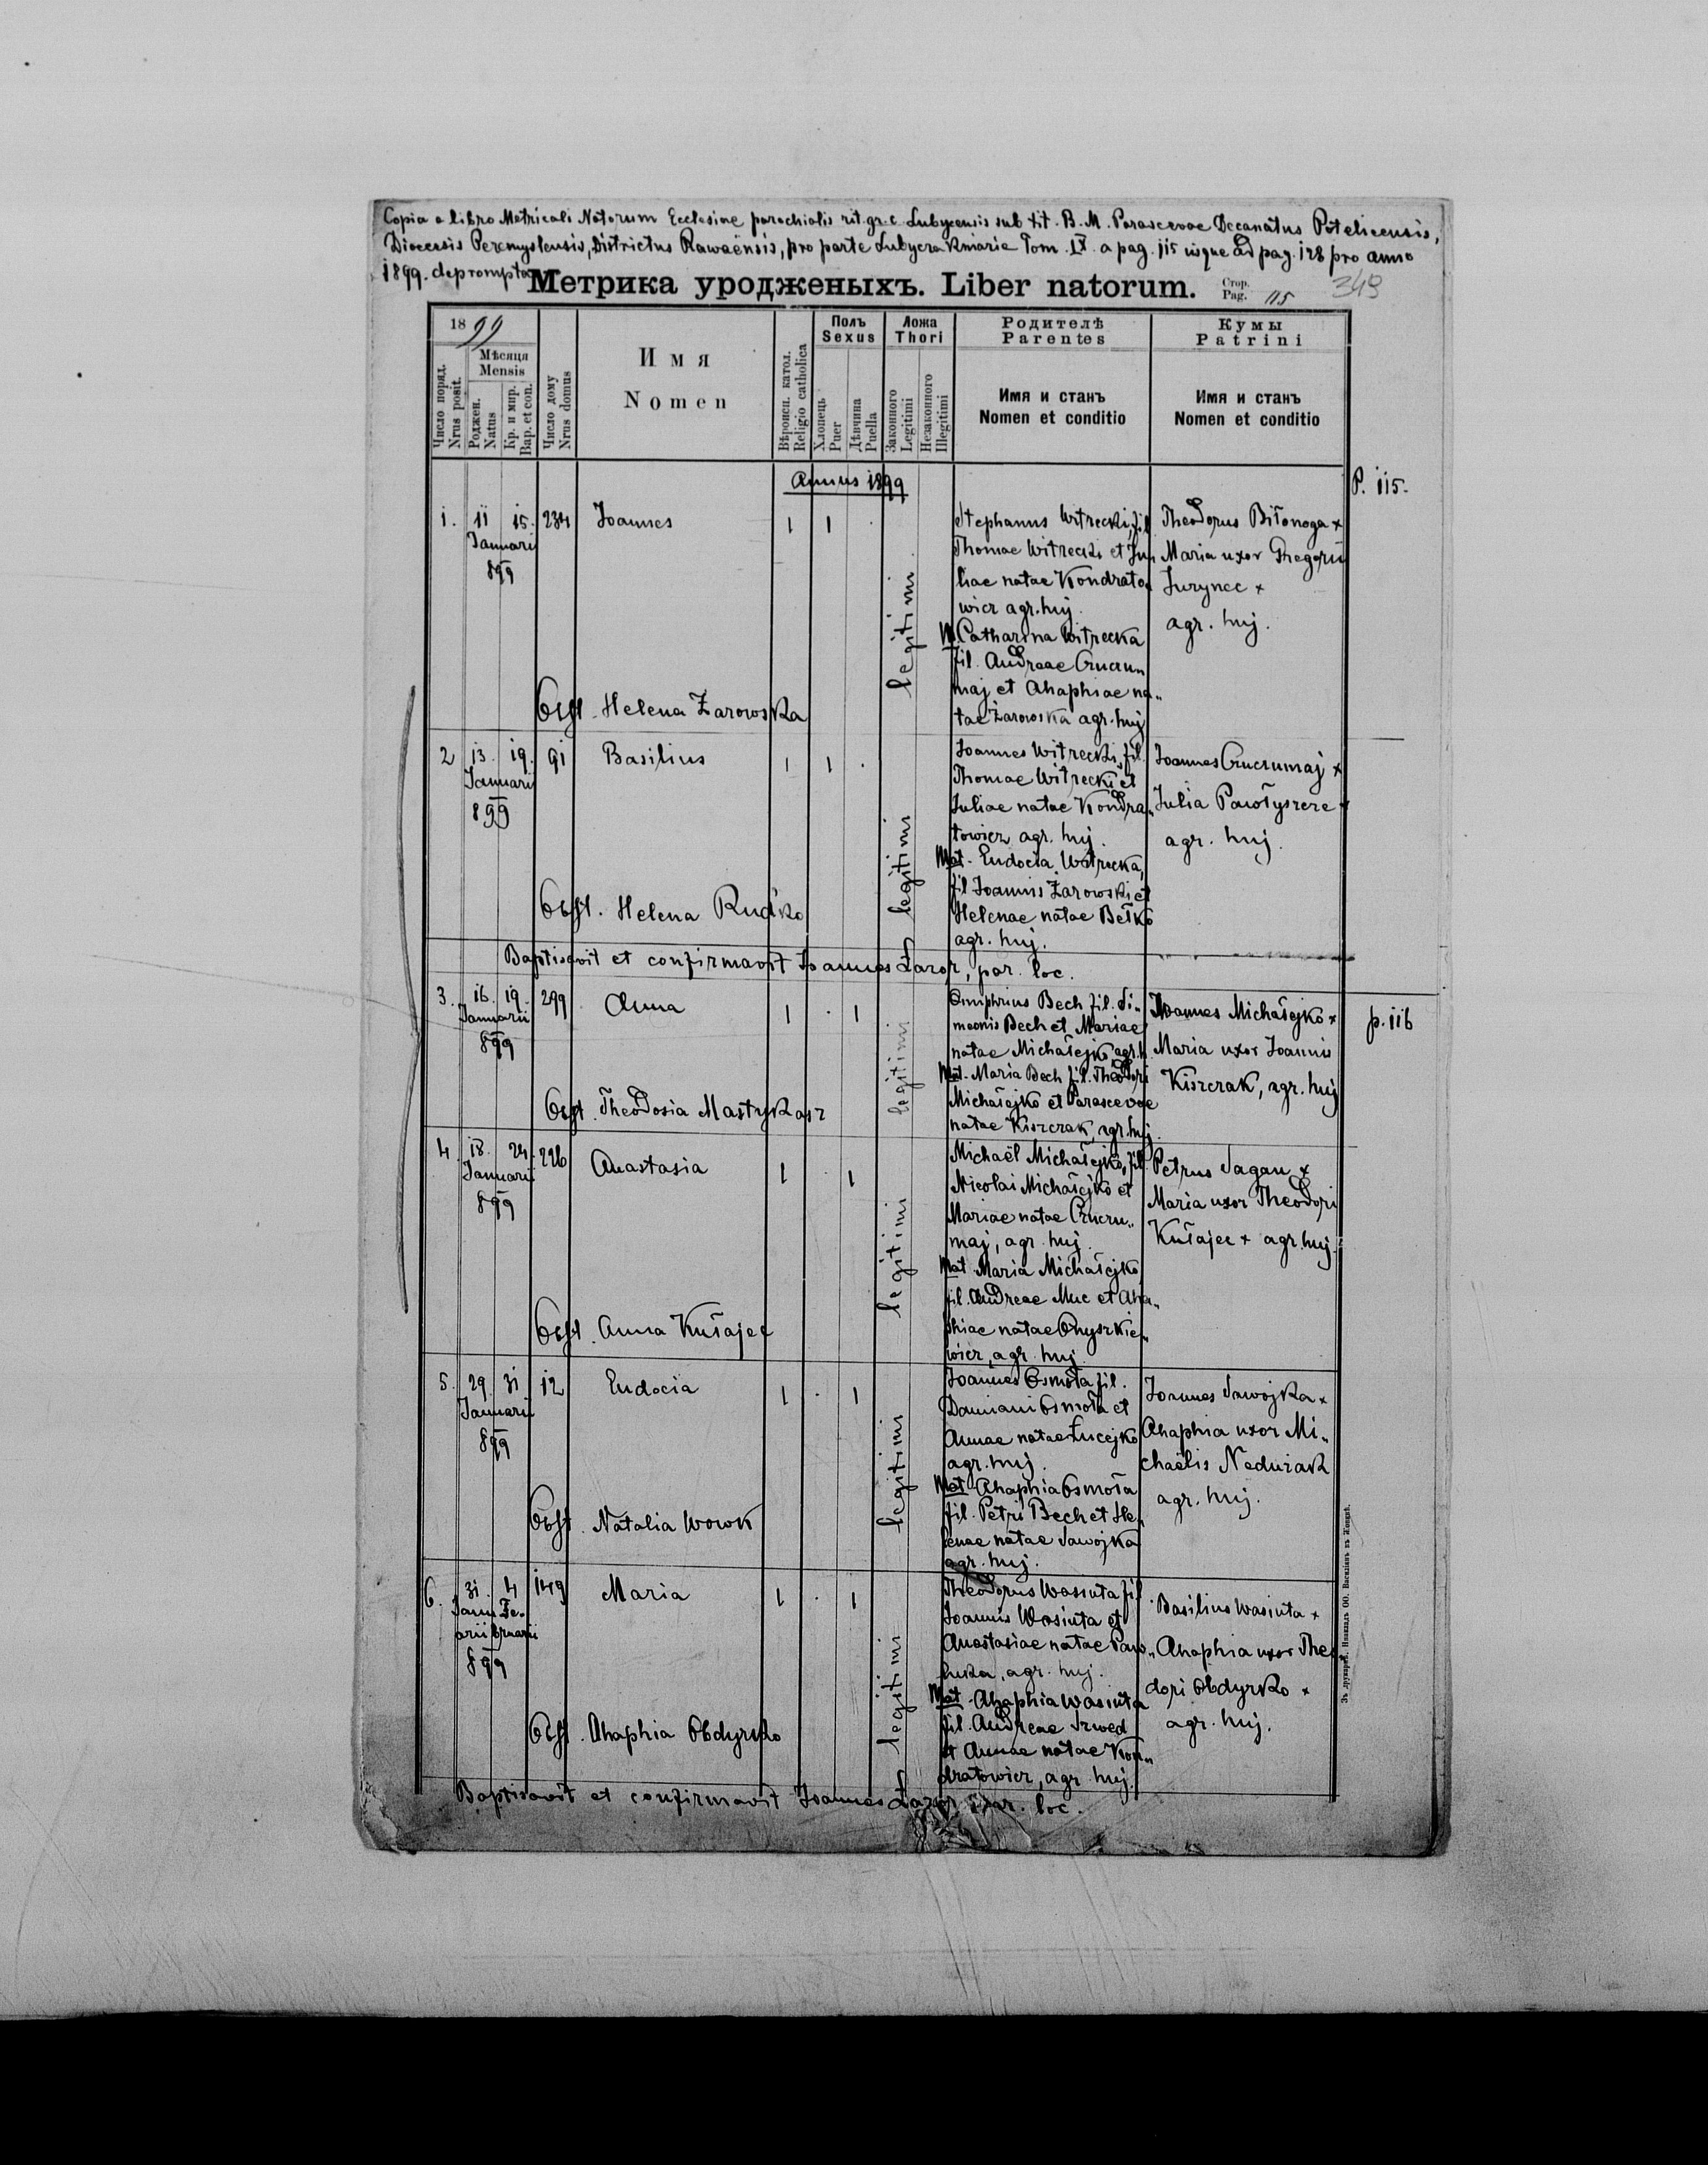 Copia e libro Metricali Natorum Ecclesiae parochialis rit. gr. c. Lubycensis sub tit. B. M. Parascevae Decanatus Potelicensis,
Dioecesis Peremyslensis, Districtus Rawaënsis, pro parte Lubycza Kniazie Tom. IX. a pag. 115 usque ad pag. 128 pro anno
1899. deprompta
Метрика уродженыхъ. Liber natorum.
Стор.
Pag. 115
349
1899
Число поряд.
Nrus posit.
Мѣсяця
Mensis
Роджен.
Natus
Кр. и мир.
Bap. et con.
Число дому
Nrus domus
Имя
Nomen
Вѣроисп. катол.
Religio catholica
Полъ
Sexus
Хлопець
Puer
Дѣвчина
Puella
Ложа
Thori
Законного
Legitimi
Незаконного
Illegitimi
Родителѣ
Parentes
Имя и станъ
Nomen et conditio
Кумы
Patrini
Имя и станъ
Nomen et conditio
Annus 1899
P. 115.
1. 11 15. 234 Joannes 1 1 .
Januarii
899
legitimi
Stephanus Witrecki, fil.
Thomae Witrecki et Ju„
liae natae Kondrato
wicz agr. huj.
M. Catharina Witrecka
fil. Andreae Cruczu„
maj et Ahaphiae na„
tae Żarowska agr. huj
Theodorus Biłonoga +
Maria uxor Gregorii
Jurynec +
agr. huj.
Obst. Helena Żarowska
2 13. 19. 91 Basilius 1 1 .
Januarii
899
legitimi
Joannes Witrecki, fil.
Thomae Witrecki et
Juliae natae Kondra„
towicz agr. huj.
Mat. Eudocia Witrecka,
fil Joannis Żarowski et
Helenae natae Bełko
agr. huj.
Joannes Cruczumaj +
Julia Pawłyszcze +
agr. huj.
Obst. Helena Rudko
Baptisavit et confirmavit Joannes Łazor, par. loc.
3. 16. 19. 299 Anna 1 . 1
Januarii
899
legitimi
Onuphrius Bech fil. Si„
meonis Bech et Mariae
natae Michałejko agr. h.
Mat. Maria Bech fil. Theodori
Michałejko et Parascevae
natae Kiszczak, agr. huj.
Joannes Michałejko +
Maria uxor Joannis
Kiszczak, agr. huj
p. 116
Obst. Theodosia Mastykasz
4. 18. 24. 226 Anastasia 1 . 1
Januarii
899
legitimi
Michaël Michałejko, fil.
Nicolai Michałejko et
Mariae natae Cruczu„
maj, agr. huj.
Mat. Maria Michałejko
fil. Andreae Muc et Aha„
phiae natae Onyszkie„
wicz, agr. huj
Petrus Sagan +
Maria uxor Theodori
Kułajec + agr. huj.
Obst. Anna Kułajec
5. 29. 31 12 Eudocia 1 . 1
Januarii
899
legitimi
Joannes Osmoła fil.
Damiani Osmoła et
Annae natae Łucejko
agr. huj.
Mat. Ahaphia Osmoła
fil. Petri Bech et He„
lenae natae Sawojka
agr. huj.
Joannes Sawojka +
Ahaphia uxor Mi„
chaëlis Nedużak
agr. huj.
Obst. Natalia Wowk
6. 31. 4 149 Maria 1 . 1
Janu Fe-
arii bruarii
899
legitimi
Theodorus Wasiuta fil
Joannis Wasiuta et
Anastasiae natae Paw„
luka, agr. huj.
Mat. Ahaphia Wasiuta
fil. Andreae Szwed
et Annae natae Kon„
dratowicz, agr. huj.
Basilius Wasiuta +
Ahaphia uxor Theo
dori Obdyrko +
agr. huj.
Obst. Ahaphia Obdyrko
Baptisavit et confirmavit Joannes Łazor par. loc.
Зъ друкарнѣ Накладъ ОО. Василіянъ въ Жовквѣ.